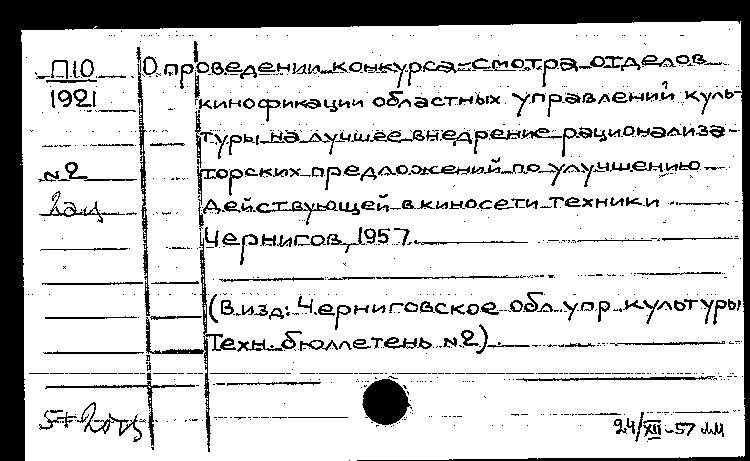 П10
1921
№2
О проведении конкурса-смотра отделов
кинофикации областных управлений куль-
туры на лучшее внедрение рационализа-
торских предложений по улучшению
действующей в киносети техники
Чернигов, 1957.
(В изд: Черниговское обл. упр. культуры
Техн. бюллетень №2).
24/XII-57